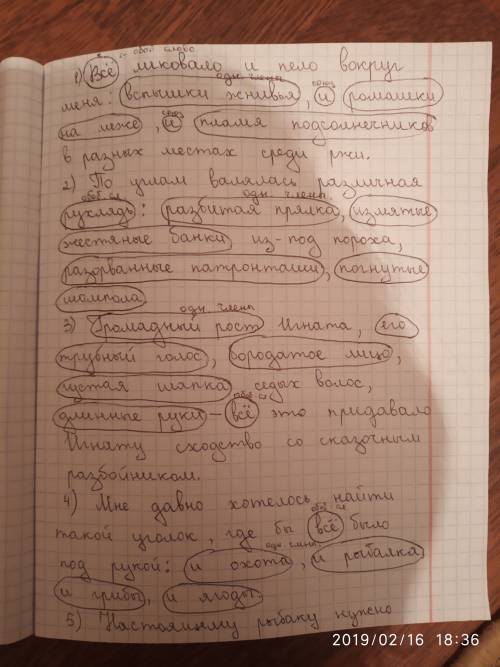 обоб слово
1) Всё ликовало и пело вокруг
одн. члены союз
меня: вспышки жнивья, и ромашки
союз
на меже, и пламя подсолнечников
в разных местах среди ржи.
2) По углам валялась различная
обоб. сл одн. члены
рухлядь: разбитая прялка, измятые
жестяные банки из-под пороха,
разорванные патронташи, погнутые
шомпола.
одн. члены
3) Громадный рост Игната, его
трубный голос, бородатое лицо,
густая шапка седых волос,
обоб. сл
длинные руки – всё это придавало
Игнату сходство со сказочным
разбойником.
4) Мне давно хотелось найти
обоб сл
такой уголок, где бы всё было
одн члены
под рукой: и охота, и рыбалка
и грибы, и ягоды.
5) Настоящему рыбаку нужно
2019/02/16 18:36